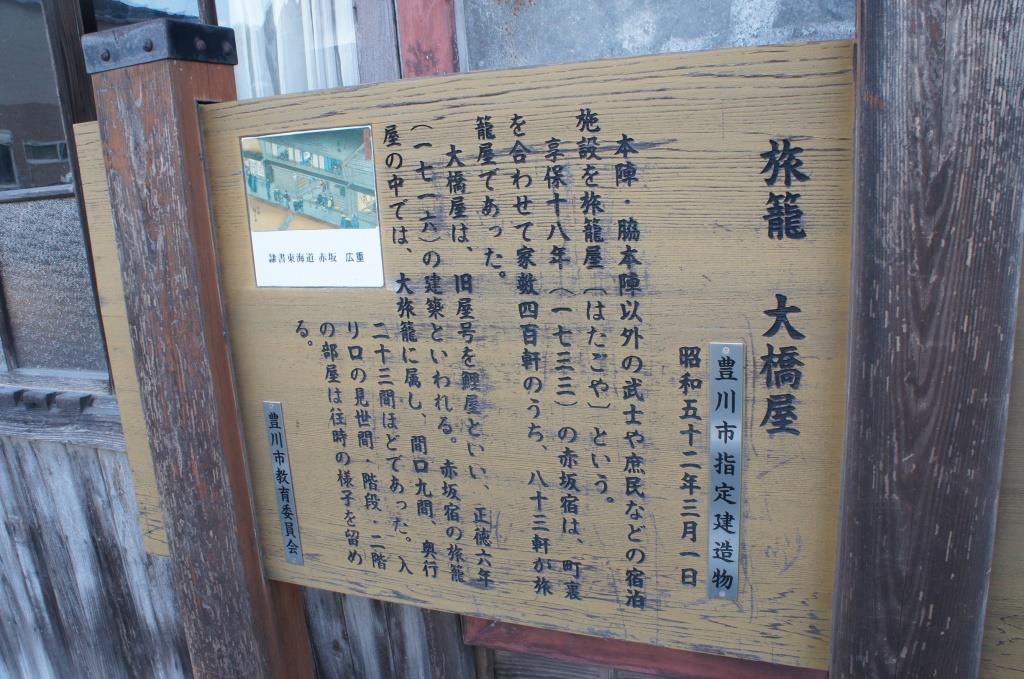 旅籠 大橋屋
豊川市指定建造物
昭和五十二年三月一日
本陣・脇本陣以外の武士や庶民などの宿泊
施設を旅籠屋(はたごや)という。
享保十八年(一七三三)の赤坂宿は、町裏
を合わせて家数四百軒のうち、八十三軒が旅
籠屋であった。
大橋屋は、旧屋号を鯉屋といい、正徳六年
(一七一六)の建築といわれる。赤坂宿の旅籠
屋の中では、大旅籠に属し、間口九間、奥行
二十三間ほどであった。入
り口の見世間・階段・二階
の部屋は往時の様子を留め
る。
隷書東海道 赤坂 広重
豊川市教育委員会